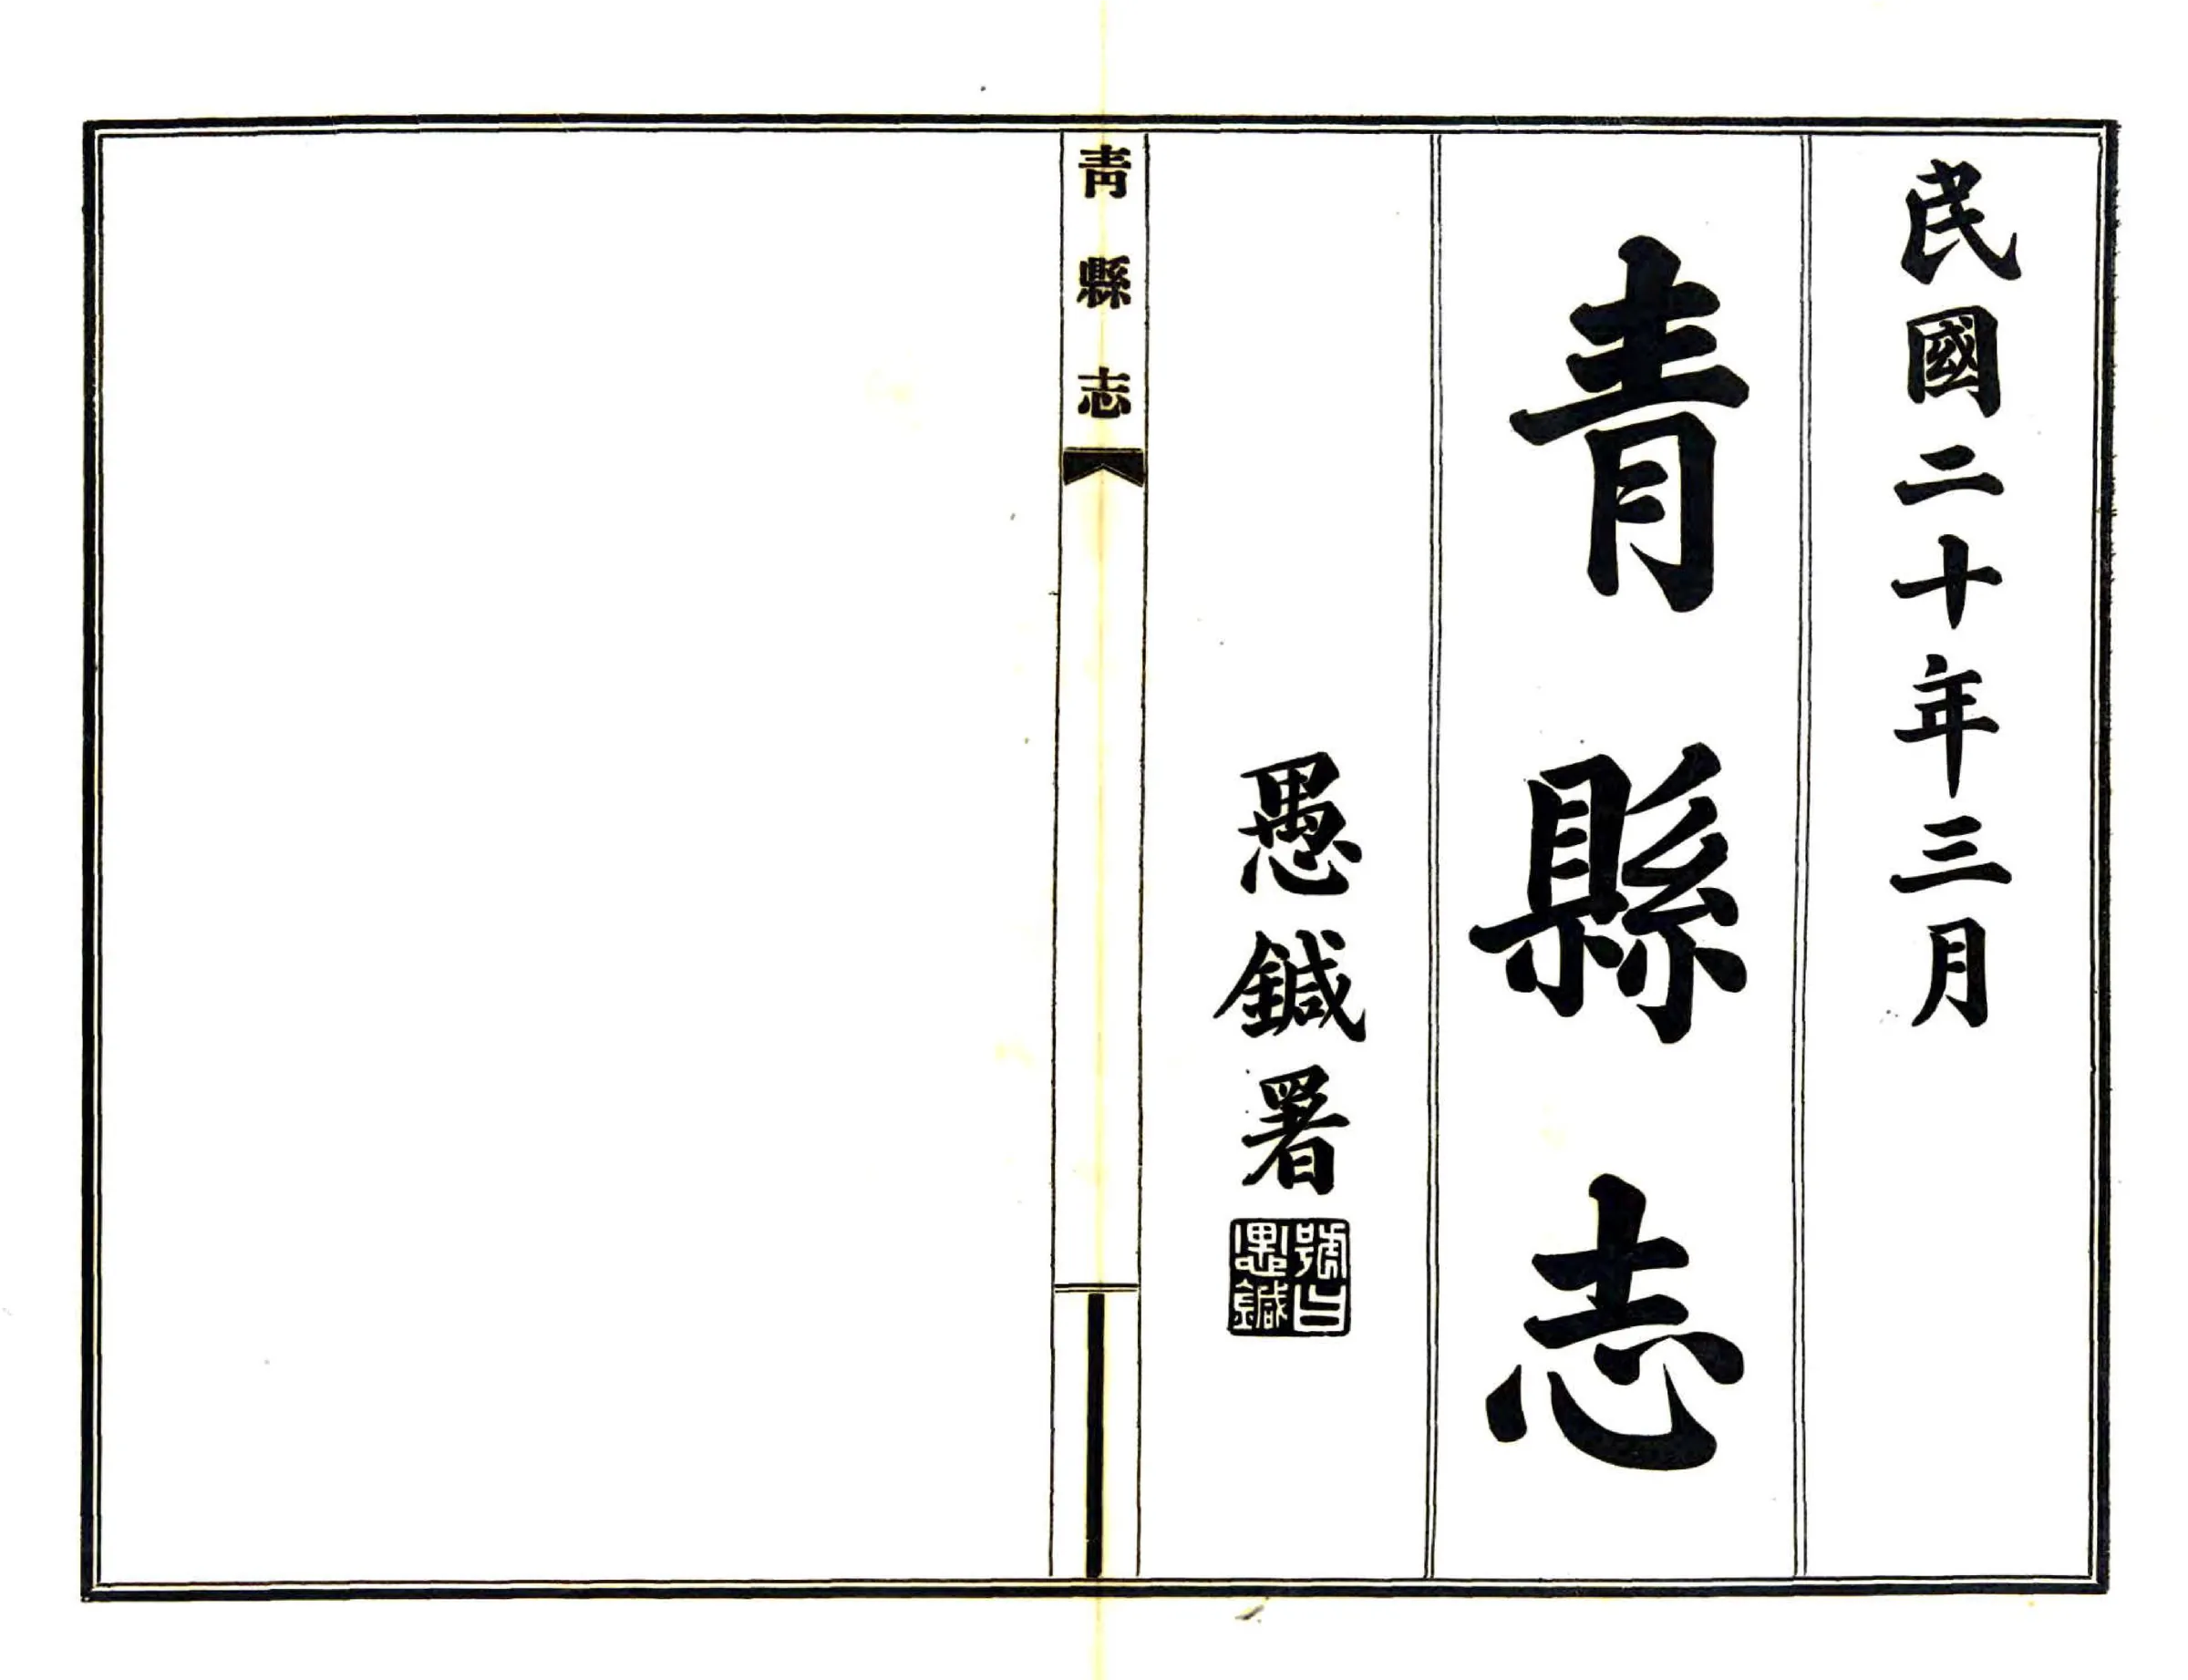 民國二十年三月
青縣志
愚鍼署
號曰愚鍼
青縣志